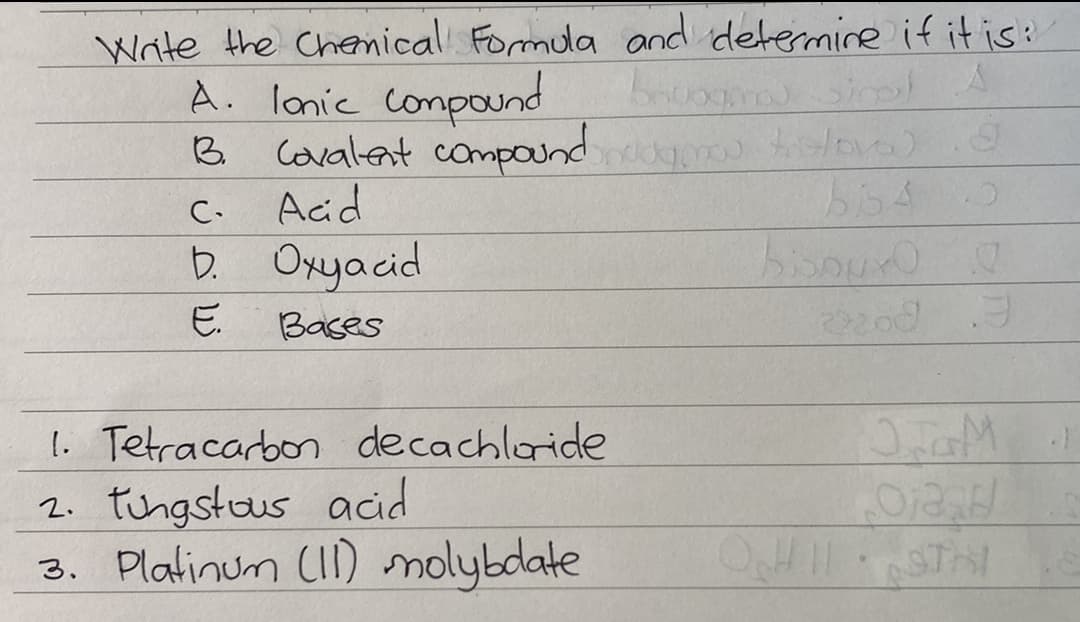 Write the Chemical Formula and determine if it is:
A. Ionic compound
B. Covalent compound
C. Acid
D. Oxyacid
E. Bases
1. Tetracarbon decachloride
2. tungstous acid
3. Platinum (II) molybdate